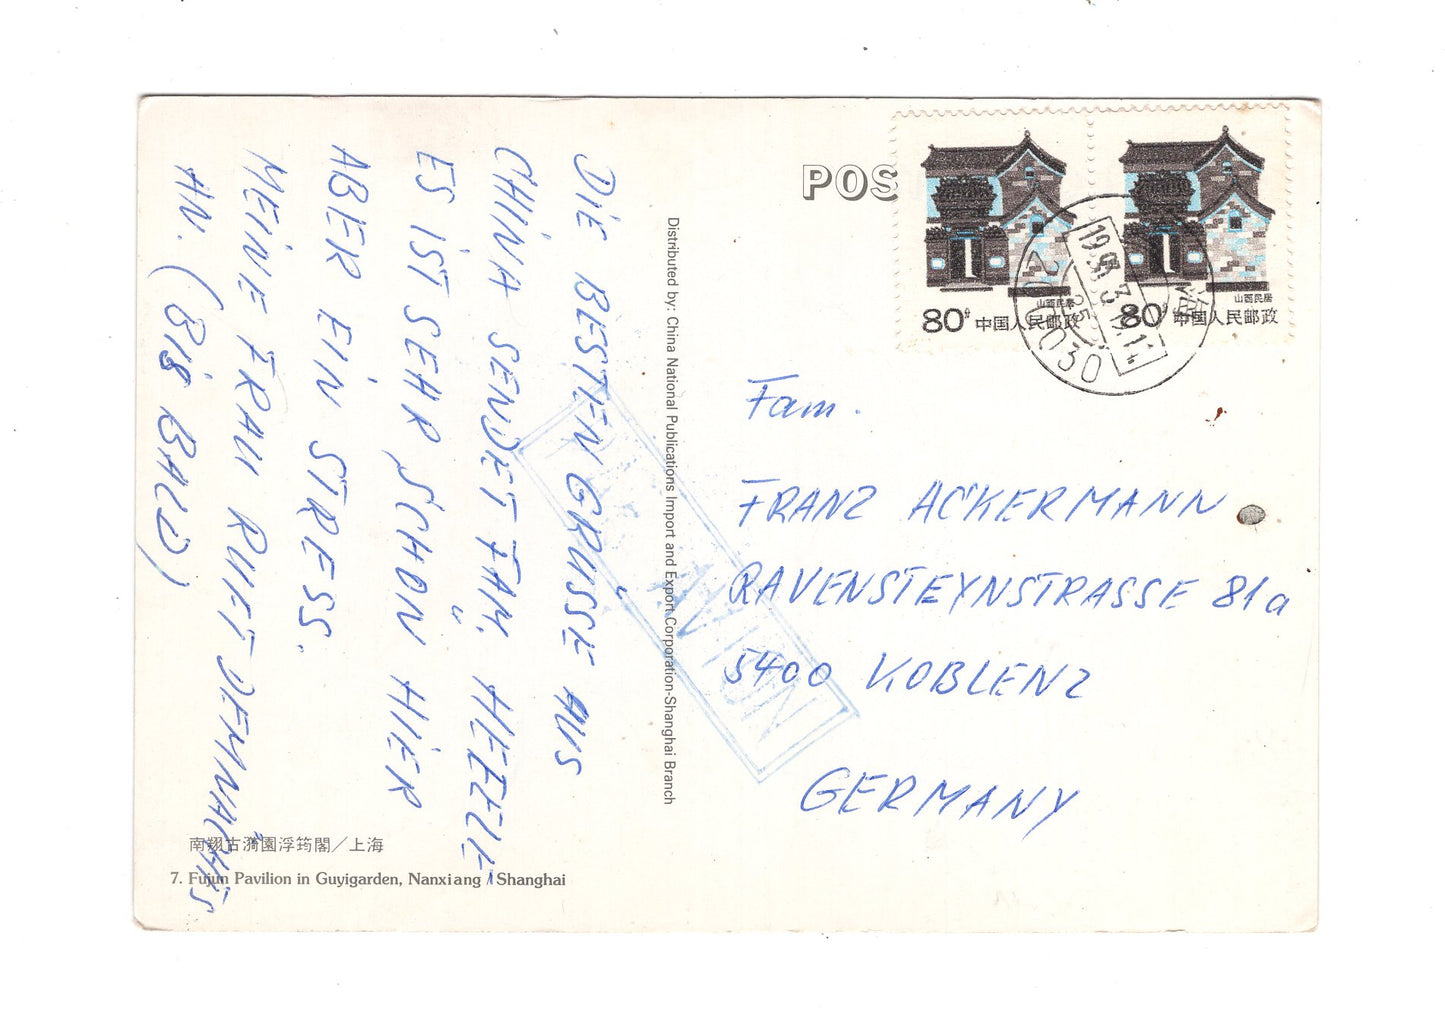 DIE BESTEN GRÜSSE AUS
CHINA SENDET FAM. HEFELE
ES IST SEHR SCHÖN HIER
ABER EIN STRESS.
MEINE FRAU RUFT DEMNÄCHTS
AN. (BIS BALD)
南翔古漪園浮筠閣／上海
7. Fujun Pavilion in Guyigarden, Nanxiang / Shanghai
Distributed by: China National Publications Import and Export Corporation-Shanghai Branch
POS
山西民居
80分 中国人民邮政
山西民居
80分 中国人民邮政
200030
PAR AVION
Fam.
FRANZ ACKERMANN
RAVENSTEYNSTRASSE 81a
5400 KOBLENZ
GERMANY